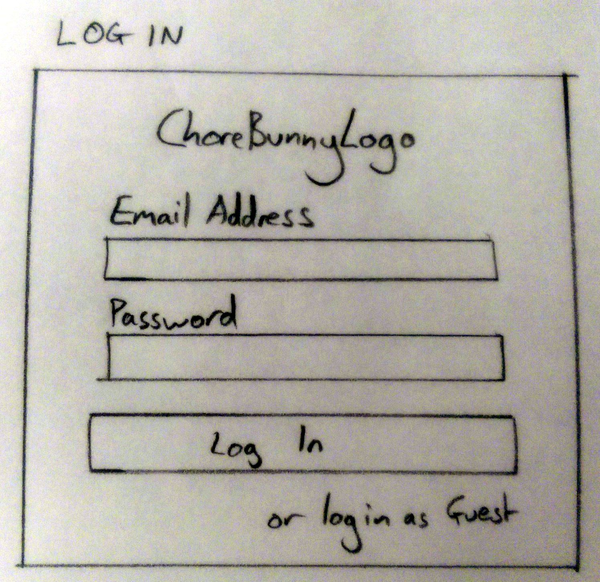 LOG IN
ChoreBunnyLogo
Email Address
Password
Log In
or log in as Guest